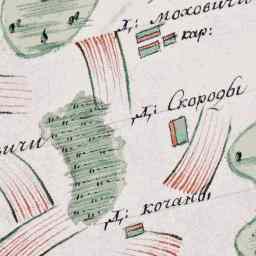 Д: Моховичи
кар:
Д: Скороды
ичи
Д: кочаны